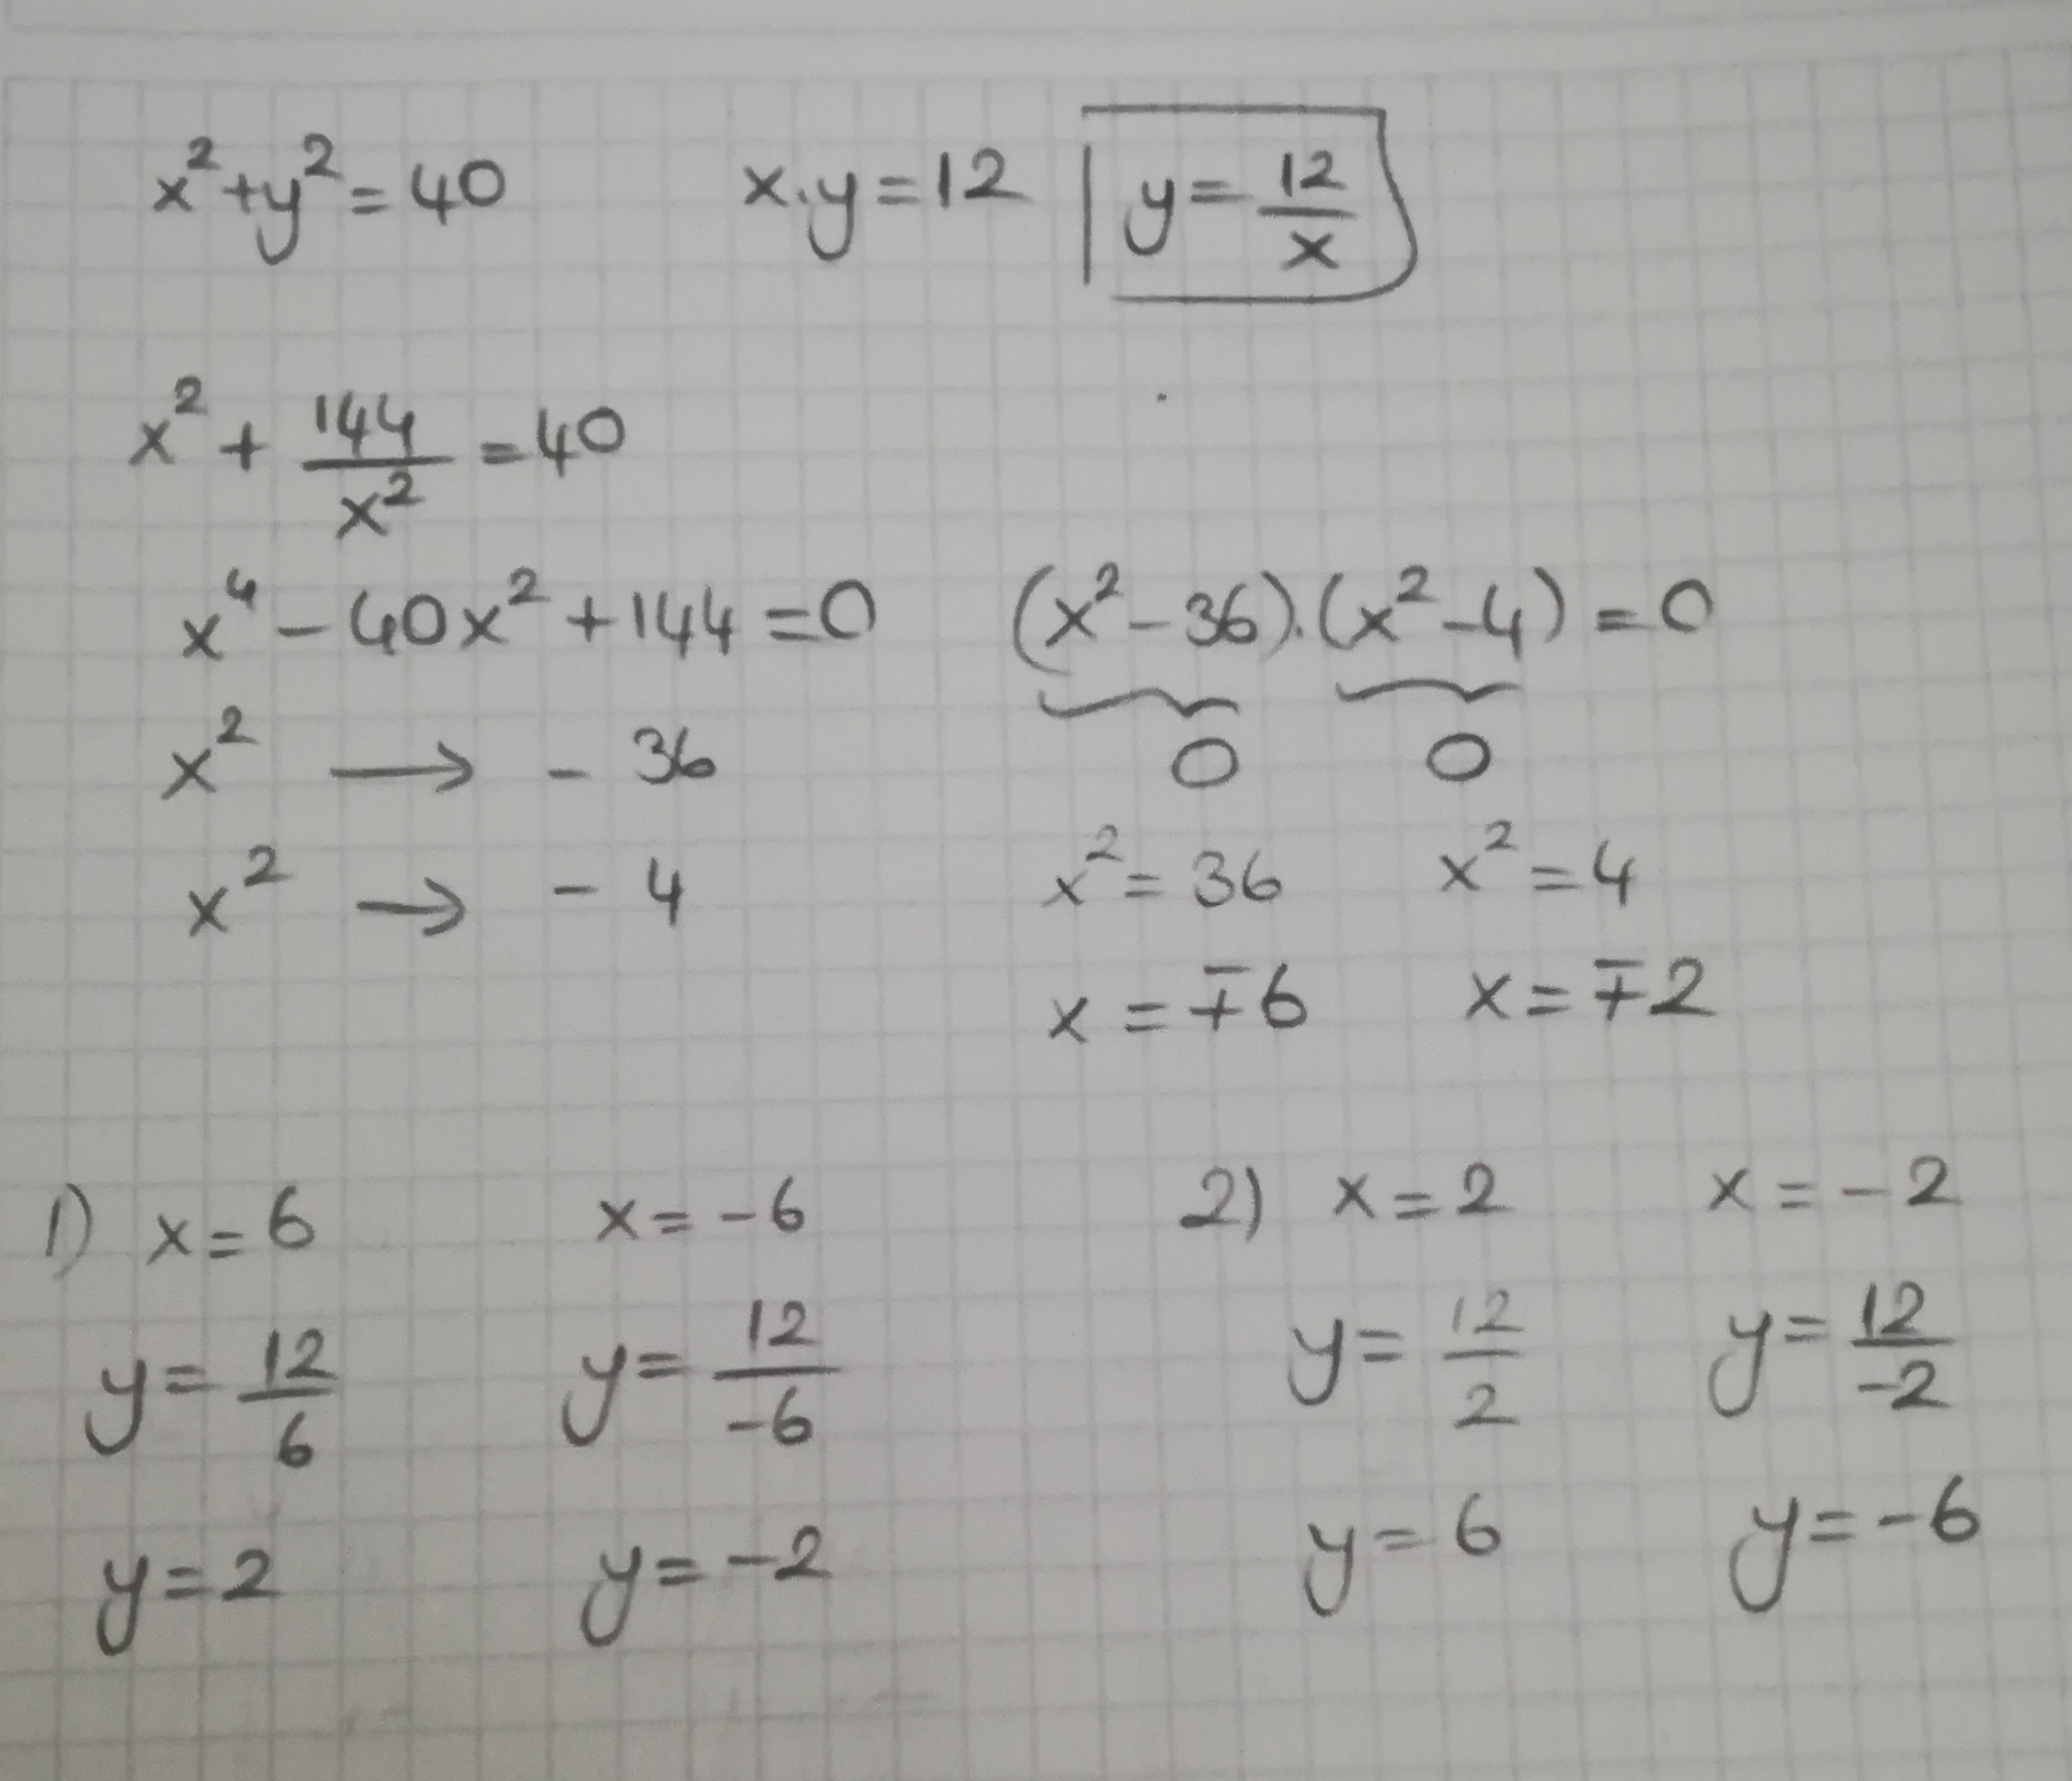 x²+y²=40 x.y=12 y=12/x
x²+144/x²=40
x⁴-40x²+144=0 (x²-36).(x²-4)=0
x² → -36 0 0
x² → -4 x²=36 x²=4
x=∓6 x=∓2
1) x=6 x=-6 2) x=2 x=-2
y=12/6 y=12/-6 y=12/2 y=12/-2
y=2 y=-2 y=6 y=-6